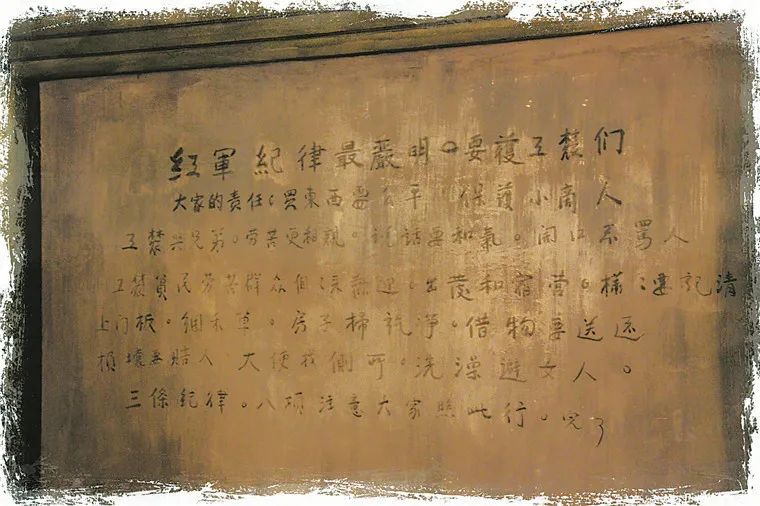 红軍紀律最嚴明。要復工農们
大家的責任：買東西要公平 保護小商人
工農兴兄弟。劳苦更相親。說話要和氣。開口不罵人
工農貧民劳苦群众個：來歡迎。出發和宿营。樣：要記清
上门板。捆禾草。房子掃乾净。借物要送还
損壞要賠人 大便找側可。洗澡避女人。
三條紀律。八項注意大家照此行。完了